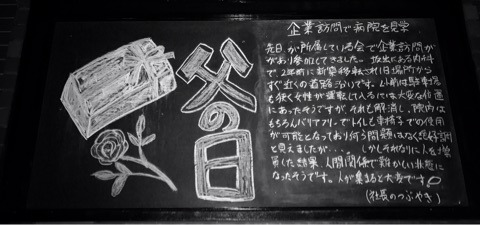 父の日
企業訪問で病院を見学
先日、が所属している会で企業訪問が
があり参加してきました。放出にある内科
で2年前に新築移転され旧場所から
すぐ近くの道路ぞいです。以前は駐車場
も狭く女性が運転して入るには大変な位置
にあったそうですが、それも解消し、院内は
もちろんバリアフリーでトイレも車椅子での使用
が可能となっており何ら問題はなく絶好調
と見えましたが…。しかしそれなりに人を増
員した結果、人間関係で難かしい状態に
なったそうです。人が集まると大変です
(社長のつぶやき)